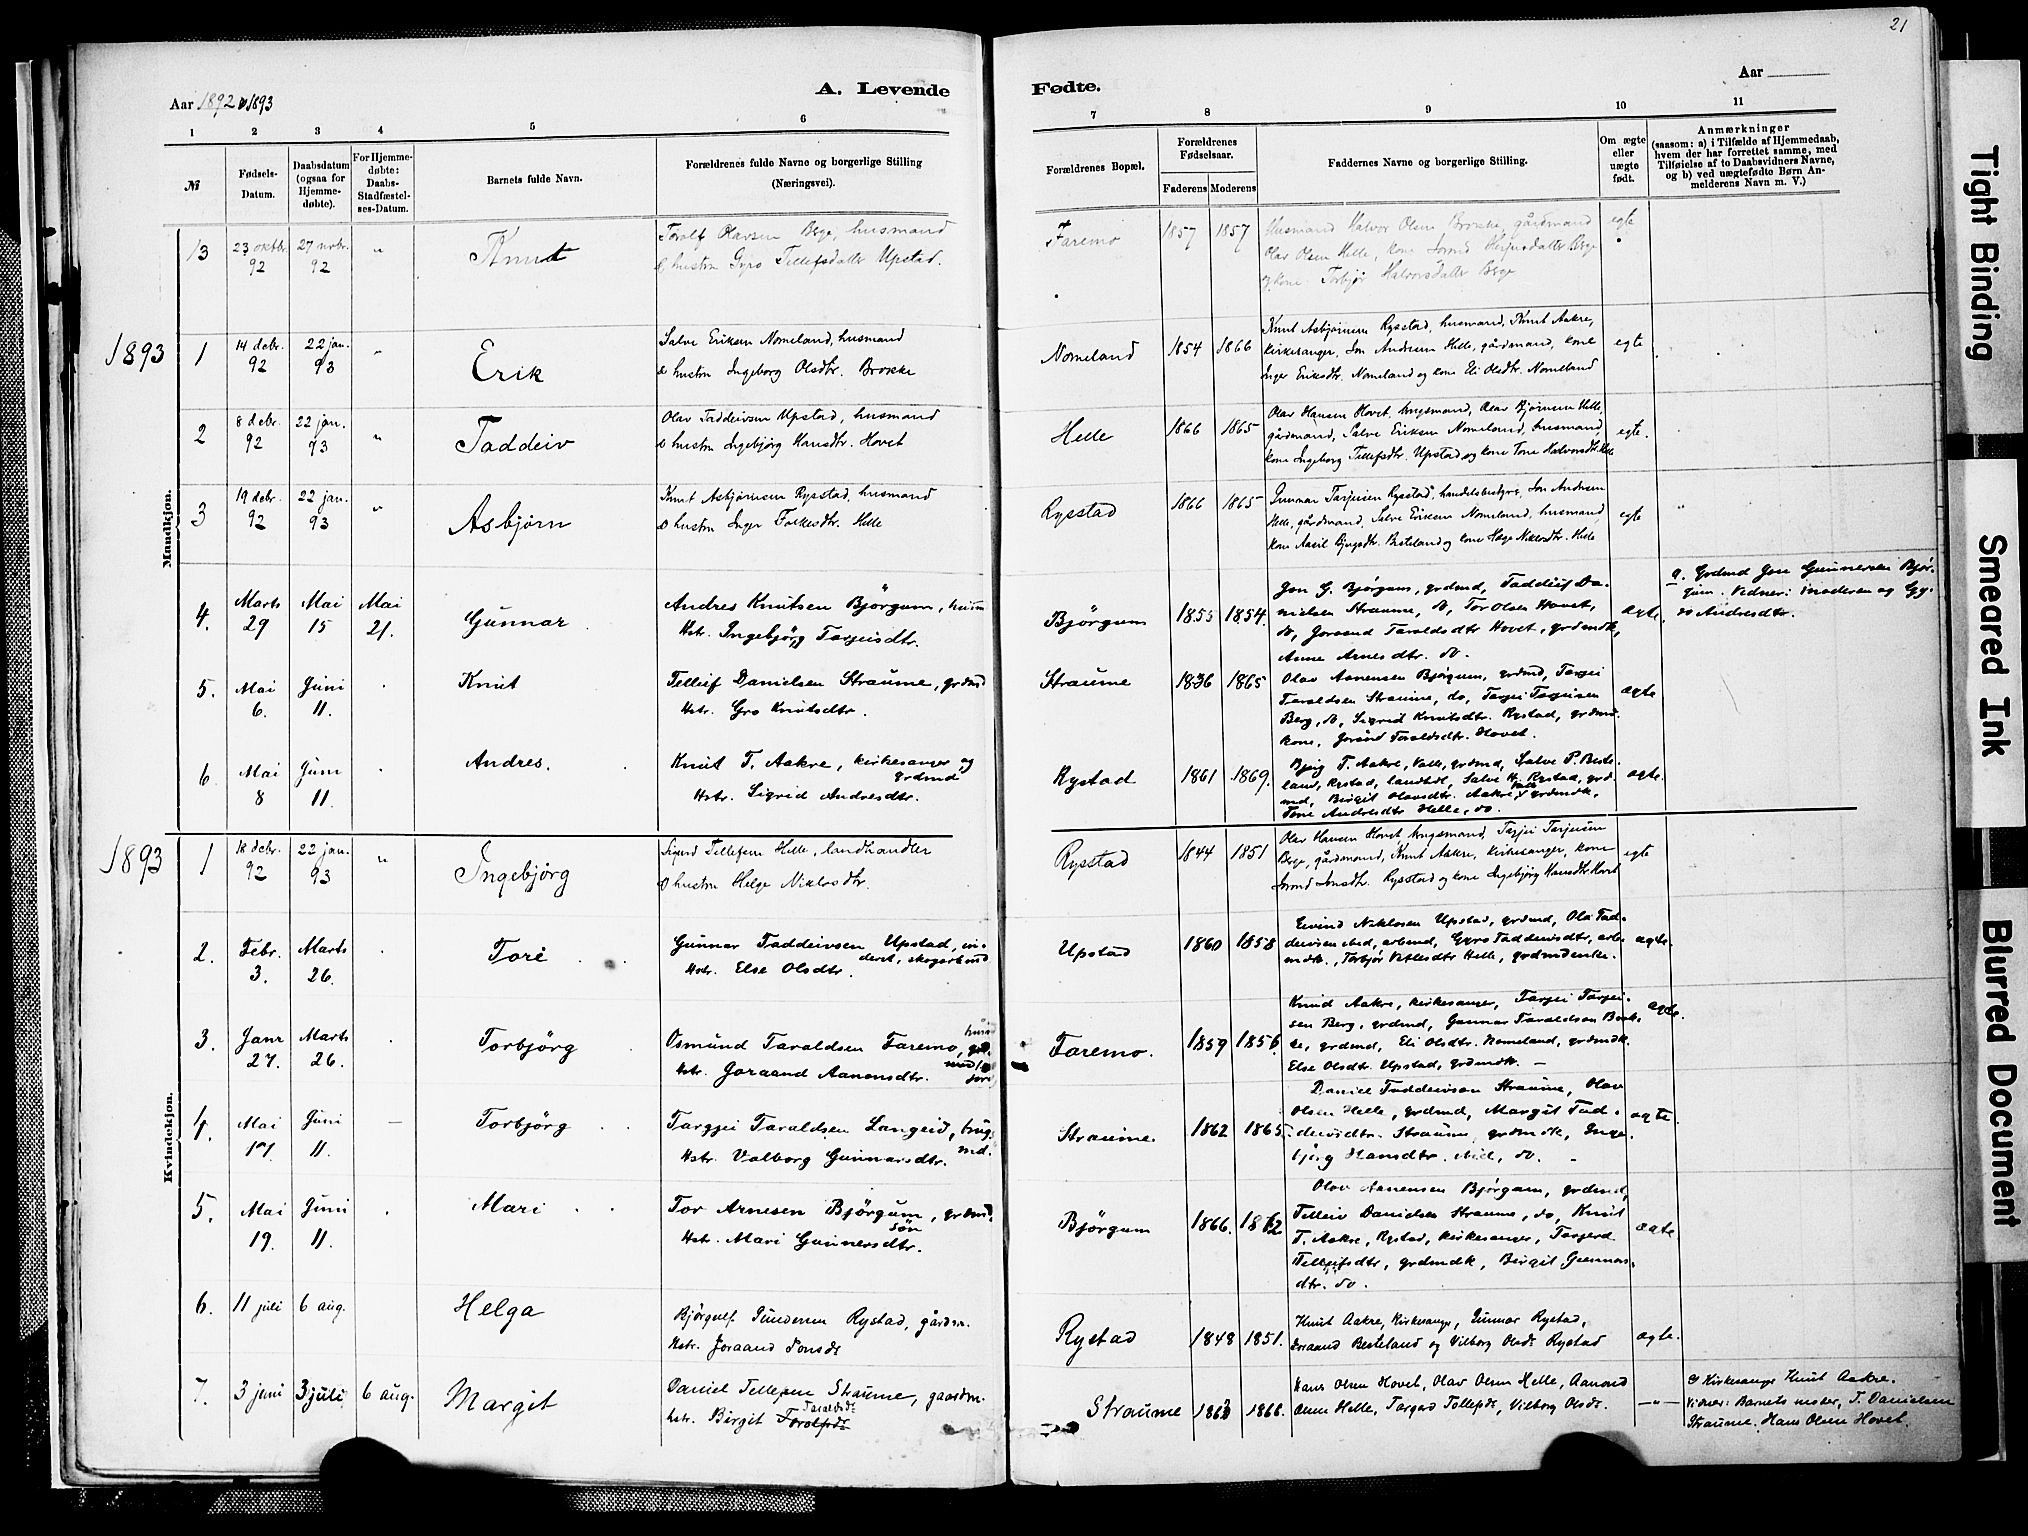 21
Aar 1892 & 1893
A. Levende
Fødte.
Aar
1 2 3 4 5 6 7 8 9 10 11
№
Fødsels-
Datum.
Daabsdatum
(ogsaa for
Hjemme-
døbte).
For Hjemme-
døbte:
Daabs-
Stadfæstel-
ses-Datum.
Barnets fulde Navn.
Forældrenes fulde Navne og borgerlige Stilling
(Næringsvei).
Forældrenes Bopæl.
Forældrenes
Fødselsaar.
Faderens Moderens
Faddernes Navne og borgerlige Stilling.
Om ægte
eller
uægte
født.
Anmærkninger
(saasom: a) i Tilfælde af Hjemmedaab,
hvem der har forrettet samme, med
Tilføielse af to Daabsvidners Navne,
og b) ved uægtefødte Børn An-
melderens Navn m. V.)
Mandkjøn.
13 23 oktbr. 92 27 novbr. 92 " Knut
Torolf Olavsen Berge, husmand
& hustru Gyro Tellefsdatter Upstad.
Faremo 1857 1857
Husmand Halvor Olsen Brokke, gårdmand
Olav Olsen Helle, kone Jorund
& kone Torbjør Halvorsdatter Berge
egte
1893
1 14 debr. 92 22 jan. 93 " Erik
Salve Eriksen Nomeland, husmand
& hustru Ingeborg Olsdtr. Brokke
Nomeland 1854 1866
Knut Asbjørnsen Rysstad, husmand, Knut Aakre,
kirkesanger, Jon Andresen Helle, gårdmand, kone
Inger Eriksdtr. Nomeland og kone Eli Olsdtr. Nomeland
egte
2 8 debr. 92 22 jan. 93 " Taddeiv
Olav Taddeivsen Upstad, husmand
& hustru Ingebjørg Hansdtr. Hovet
Helle 1866 1865
Olav Hansen Hovet, ungsmand, Olav Bjørnsen Helle,
gårdmand, Salve Eriksen Nomeland, husmand,
kone Ingeborg Tellefsdtr. Upstad og kone Tone Halvorsdtr. Helle
egte.
3 19 debr. 92 22 jan. 93 " Asbjørn
Knut Asbjørnsen Rysstad, husmand
& hustru Inger Folkesdtr. Helle
Rysstad 1866 1865
Gunnar Tarjeisen Rysstad, handelsbestyrer, Jon Andresen
Helle, gårdmand, Salve Eriksen Nomeland, husmand,
kone Aasil Bjugsdtr. Besteland og kone Helge Niklosdtr. Helle
egte
4. Marts 29 Mai 15 Mai 21. Gunnar
Andres Knutsen Bjørgum, husm
Hstr. Ingebjørg Targeisdtr.
Bjørgum 1855 1854
Jon G. Bjørgum, grdmd, Taddeif Da-
nielsen Straume, do, Tor Olsen Hovet,
do, Goraand Taraldsdtr Hovet, grdmdk,
Anne Arnesdtr. do.
ægte.
a. Grdmd Jon Gunnersen Bjør-
gum. Vidner: Moderen og Gy-
ro Andresdtr.
5. Mai 6. Juni 11. Knut
Tellief Danielsen Straume, grdmd
Hstr. Gro Knutsdtr.
Straume 1836 1865
Olav Aanensen Bjørgum, grdmd, Targei
Taraldsen Straume, do, Targei Targeisen
Berg, do, Sigrid Knutsdtr. Rystad, grdmd-
kone, Joränd Toraldsdtr. Hovet.
ægte
6. Mai 8 Juni 11. Andres.
Knut T. Aakre, kirkesanger og
grdmd
Hstr. Sigrid Andresdtr.
Rystad 1861 1869.
Bjug T. Aakre, Valle, grdmd, Salve P. Beste-
land, Rystad, landhdl, Salve H. Rystad, grd-
md, Birgit Olavsdtr. Aakre, Valle grdmdk,
Tone Andresdtr Helle, do.
ægte.
1893
Kvindekjøn.
1 18 debr. 92 22 jan. 93 " Ingebjørg
Sigurd Tellefsen Helle, landhandler
& hustru Helge Niklosdtr.
Rysstad 1844 1851
Olav Hansen Hovet, ungsmand, Tarjei Tarjeisen
Berge, gårdmand, Knut Aakre, kirkesanger, kone
Jorund Jonsdtr. Rysstad og kone Ingebjørg Hansdtr. Hovet
egte
2. Febr. 3. Marts 26. Tore
Gunnar Taddeivsen Upstad, in-
derst, skogarbmd
Hstr. Else Olsdtr.
Upstad 1860 1858
Eivind Niklosen Upstad, grdmd, Ola Tad-
deivsen ibid, arbmd, Gyro Taddeivsdtr, arb-
mdk., Torbjør Vetlesdtr Helle, grdmdenke.
ægte.
3. Janr 27. Marts 26. Torbjörg
Osmund Taraldsen Faremo,
Hstr. Joraand Aanonsdtr.
Faremo. 1859 1856.
Knud Aakre, kirkesanger, Targei Targei-
sen Berg, grdmd, Gunnar Taraldsen Brok-
ke, grdmd, Eli Olsdtr. Nomeland, grdmdk.
Else Olsdtr. Upstad, grdmdk. —
ægte.
4. Mai 17. Juni 11. — Torbjörg
Targjei Taraldsen Langeid, brug-
md.
Hstr. Valborg Gunnarsdtr.
Straume. 1862 1865.
Daniel Taddeivson Straume, Olav
Olsen Helle, grdmd, Margit Tad-
deivsdtr. Straume, grdmdk, Inge-
bjørg Hansdtr. ibid, do. —
ægte.
5. Mai 19. Juni 11. Mari
Tor Arnesen Bjørgum, grdmd.
søn
Hstr. Mari Gunnersdtr.
Bjørgum 1866. 1862
Olav Aanensen Bjørgum, grdmd,
Telleiv Danielsen Straume, do, Knut
T. Aakre, Rystad, kirkesanger, Torgerd
Tellefsdtr, grdmdk, Birgit Gunnars-
dtr. do.
ægte
6. 11 juli 6 aug. Helga
Bjørgulf Gundersen Rystad, gårdm.
Hstr. Joraand Jonsdr
Rystad 1848 1851.
Knut Aakre, kirkesanger, Gunnar Rystad,
Joraand Besteland og Vilborg Olsdr Rystad
ægte.
7. 3 juni 3 juli 6 aug. Margit
Daniel Tellefsen Straume, gaardm.
Taraldsdr
hstr. Birgit Torolfsdr
Straume 1863 1866.
Hans Olsen Hovet, Olav Olsen Helle, Aanond
Olsen Helle, Targerd Tellefsdr, Vilborg Olsdr.
—"—
a) Kirkesanger Knut Aakre.
Vidner: Barnets moder, T. Danielsen
Straume. Hans Olsen Hovet.
Tight Binding
Smeared Ink
Blurred Document